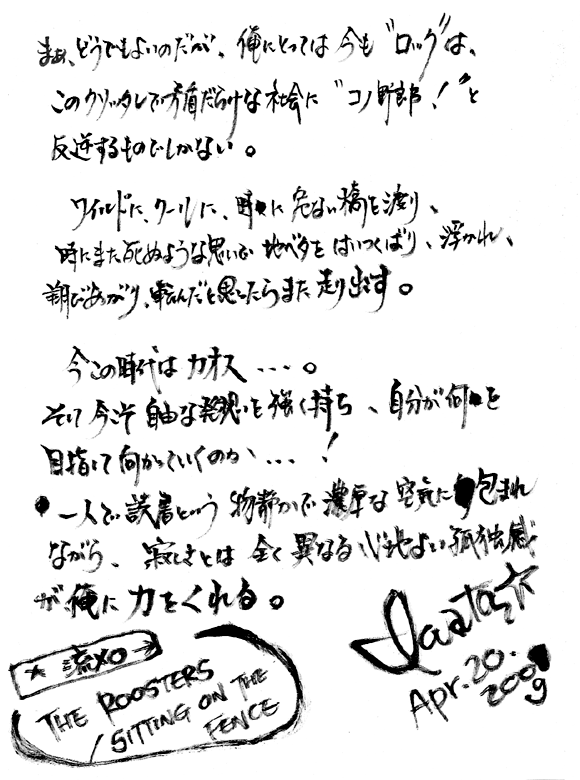 まぁ、どうでもよいのだが、俺にとっては今も“ロック”は、
このクソッタレで矛盾だらけな社会に“コノ野郎！”と
反逆するものでしかない。
ワイルドに、クールに、時に危ない橋を渡り、
時にまた死ぬような思いで地ベタをはいつくばり、浮かれ、
翔びあがり、転んだと思ったらまた走り出す。
今この時代はカオス・・・。
そして今こそ自由な発想を強く持ち、自分が何を
目指して向かっていくのか・・・！
一人で読書という物静かで濃厚な空気に包まれ
ながら、寂しさとは全く異なる心地よい孤独感
が俺に力をくれる。
★流れ→
THE ROOSTERS
/SITTING ON THE
FENCE
Apr.20.
2009